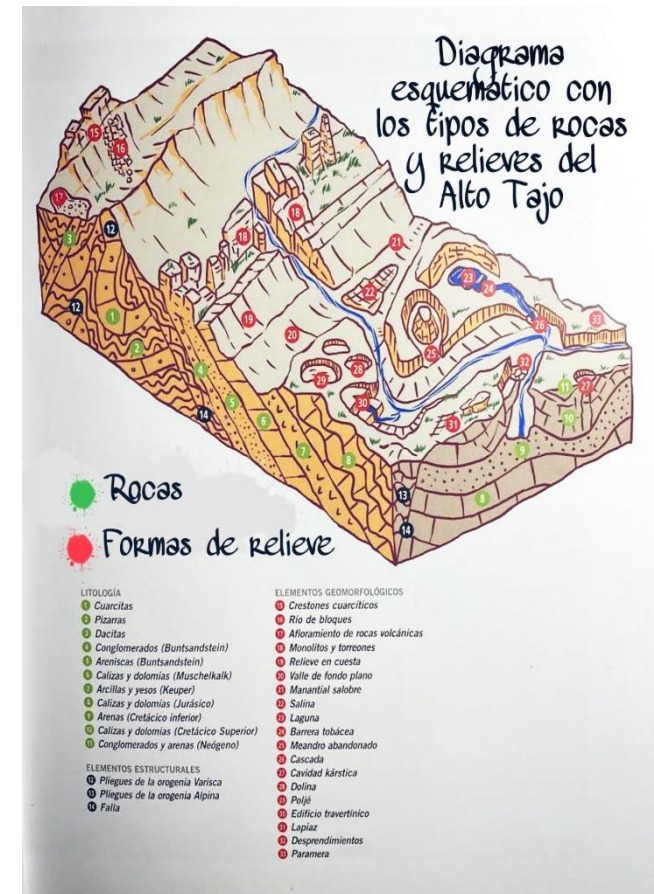 Diagrama
esquemático con
los tipos de rocas
y relieves del
Alto Tajo
15
16
17
3
12
18
18
21
23
24
22
12
1
19
20
26
33
2
25
4
28
32
5
29
11
27
14
6
30
31
10
7
9
8
13
8
14
Rocas
Formas de relieve
LITOLOGÍA
1 Cuarcitas
2 Pizarras
3 Dacitas
4 Conglomerados (Buntsandstein)
5 Areniscas (Buntsandstein)
6 Calizas y dolomías (Muschelkalk)
7 Arcillas y yesos (Keuper)
8 Calizas y dolomías (Jurásico)
9 Arenas (Cretácico inferior)
10 Calizas y dolomías (Cretácico Superior)
11 Conglomerados y arenas (Neógeno)
ELEMENTOS ESTRUCTURALES
12 Pliegues de la orogenia Varisca
13 Pliegues de la orogenia Alpina
14 Falla
ELEMENTOS GEOMORFOLÓGICOS
15 Crestones cuarcíticos
16 Río de bloques
17 Afloramiento de rocas volcánicas
18 Monolitos y torreones
19 Relieve en cuesta
20 Valle de fondo plano
21 Manantial salobre
22 Salina
23 Laguna
24 Barrera tobácea
25 Meandro abandonado
26 Cascada
27 Cavidad kárstica
28 Dolina
29 Poljé
30 Edificio travertínico
31 Lapiaz
32 Desprendimientos
33 Paramera